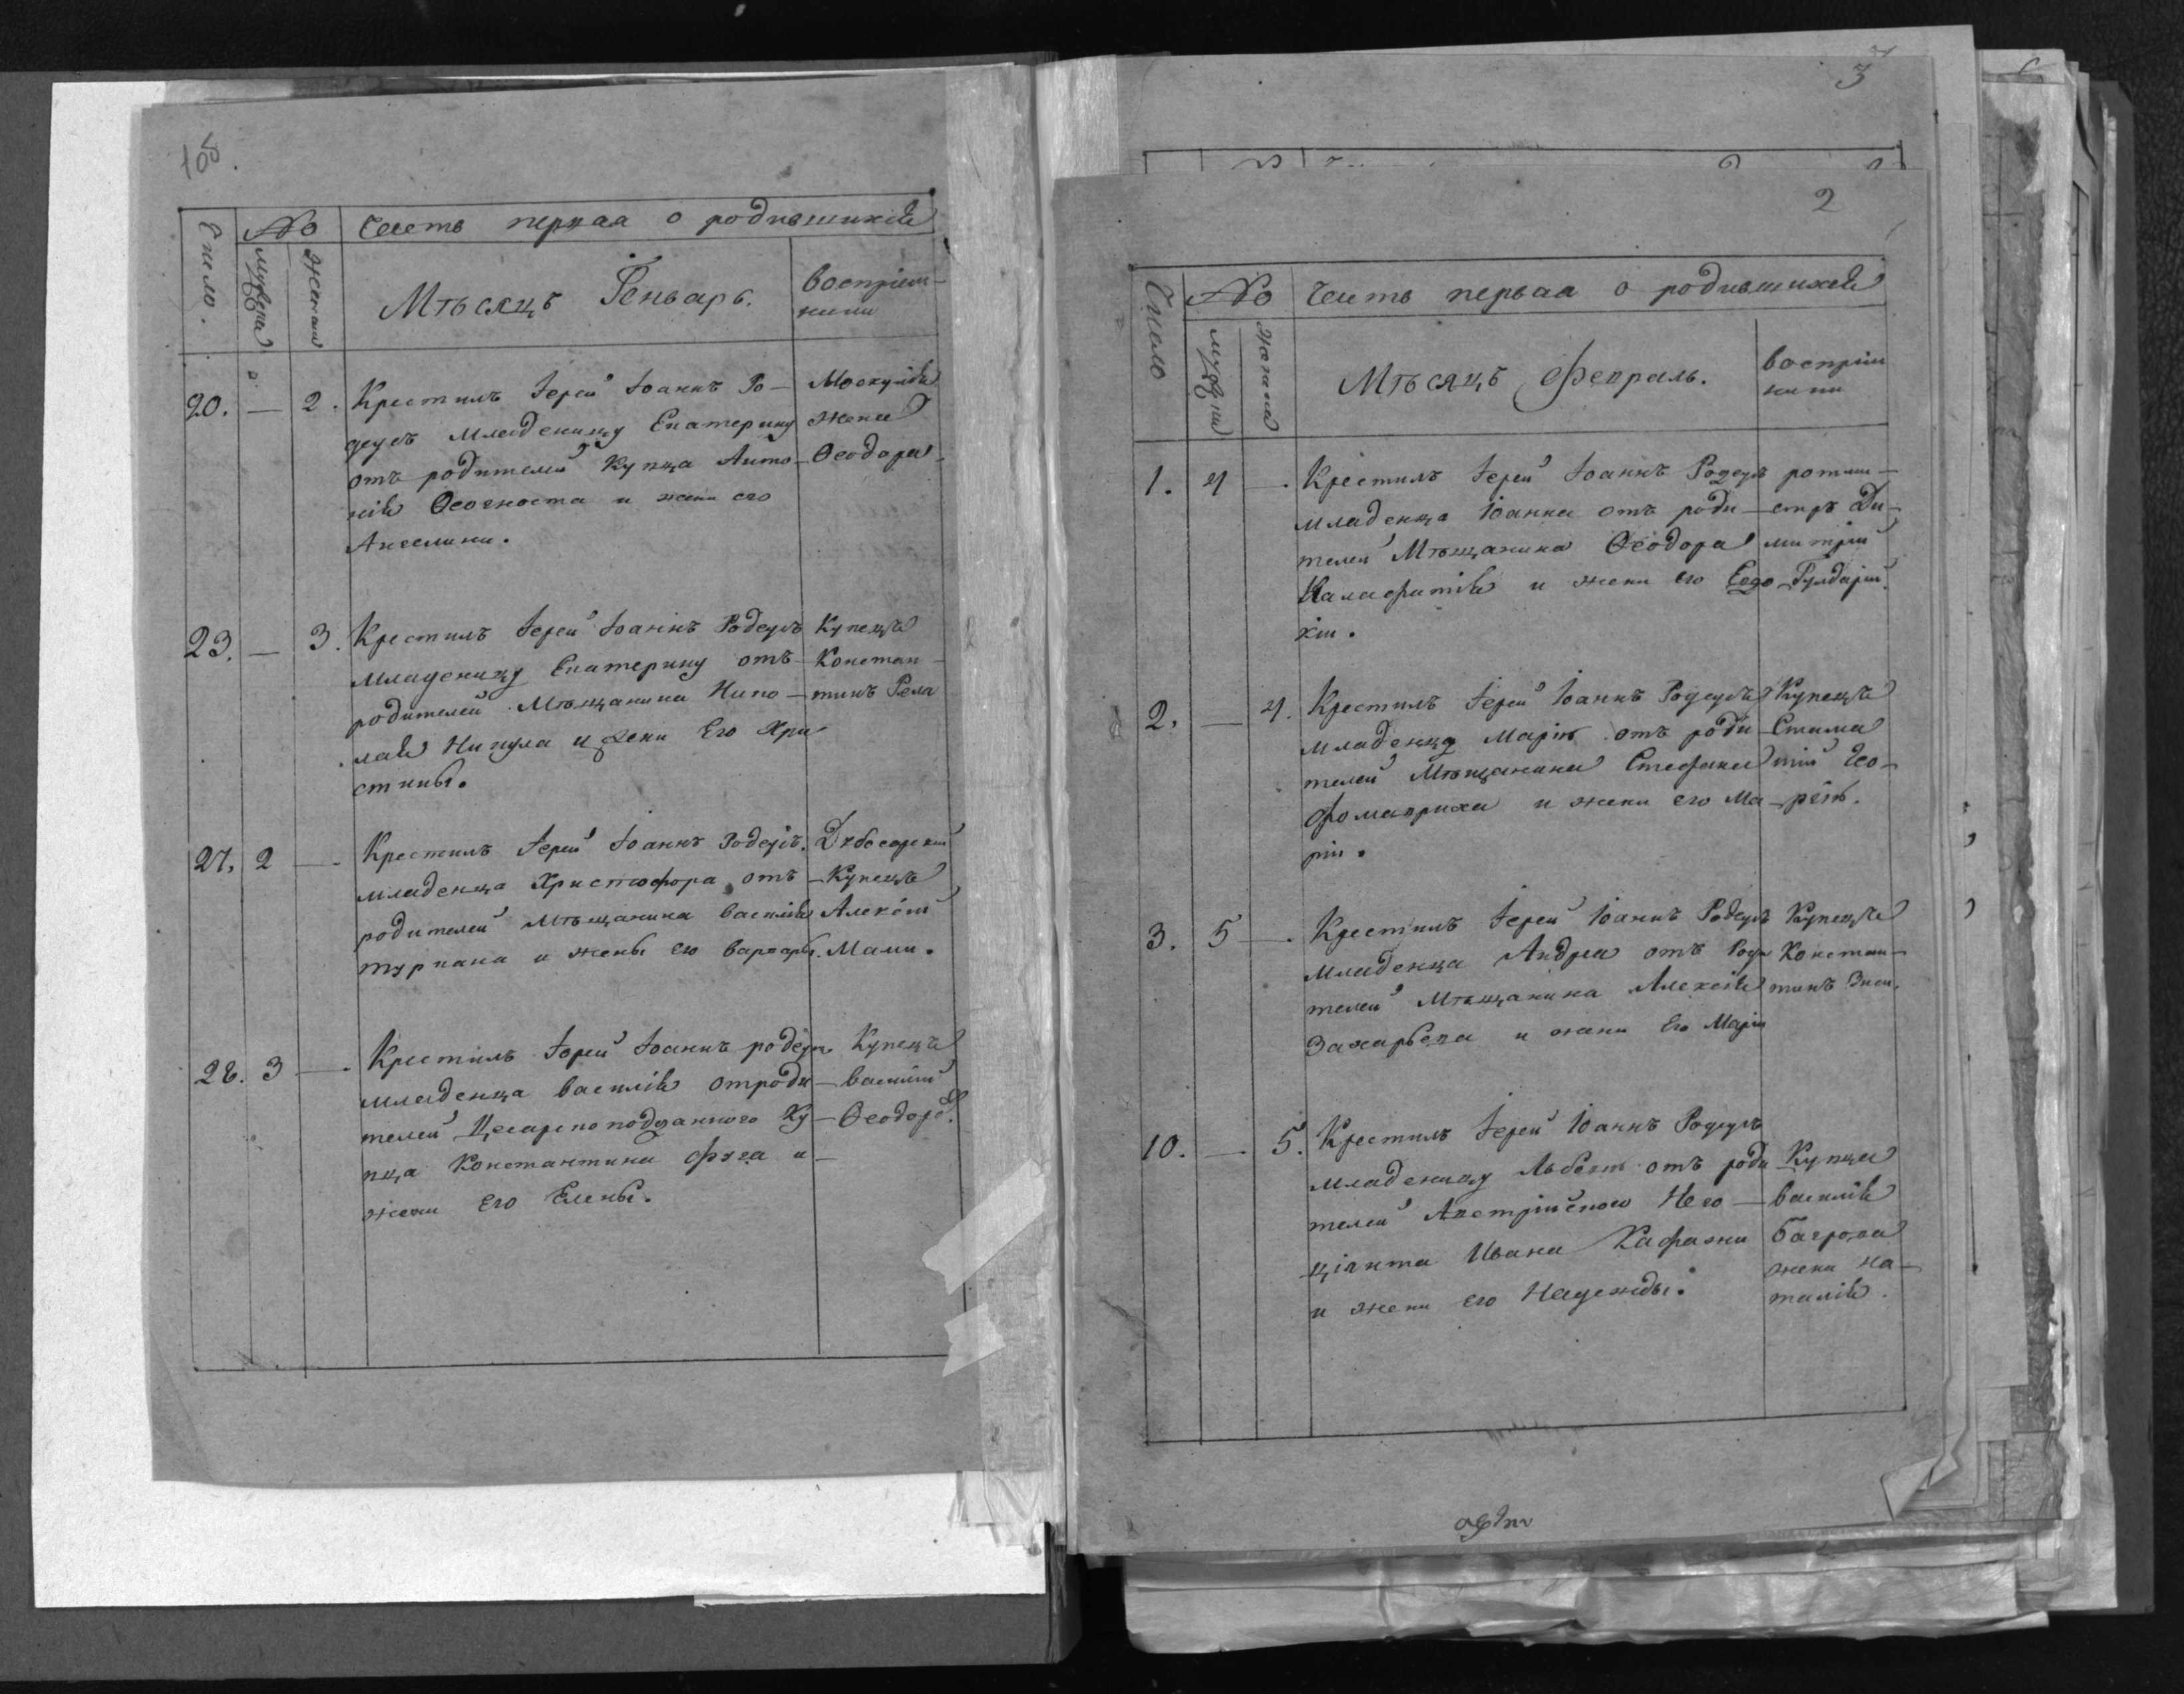 105.
Число.
№
Часть первая о родившихся
мужеска
женска
Мѣсяцъ Генварь.
Воспріем-
ники
20. — 2. Крестилъ Іерей Іоаннъ Ро-
деулъ младеницу Екатерину
отъ родителей Купца Анто-
нія Ѳеогноста и жени его
Ангелини.
жена
Ѳеодора.
23. — 3. Крестилъ Іерей Іоаннъ Родеулъ
младеницу Екатерину отъ
родителей Мѣщанина Нико-
лая Никула и жени Его Хри-
стины.
Купецъ
Констан-
тинъ Рела
27. 2 — Крестилъ Іерей Іоаннъ Родеулъ.
младенца Христофора отъ
родителей Мѣщанина Василія
туркана и жены его Варвары.
Дубосарскій
Купецъ
Алексій
Мали.
28. 3 — Крестилъ Іерей Іоаннъ родеулъ
младенца Василія отроди-
телей Цесарскоподданного Ку-
пца Константина Фуга и
жени Его Елены.
Купецъ
Василій
Ѳеодоровъ.
3
2
Число
№
Часть первая о родившихся
мужеска
женска
Мѣсяцъ Февраль.
Воспріем
ники
1. 4 — Крестилъ Іерей Іоаннъ Родеулъ
младенца Іоанна отъ роди-
телей Мѣщанина Ѳеодора
Калафатія и жени его Евдо-
кіи.
ротми-
стръ Ди-
митрій
2. — 4. Крестилъ Іерей Іоаннъ Родеулъ
младенцу Марію отъ роди-
телей Мѣщанина Стефана
и жени его Ма-
ріи.
Купецъ
Стама
тій Гео-
ргій.
3. 5 — Крестилъ Іерей Іоаннъ Родеулъ
младенца Андрея отъ Роди
телей Мѣщанина Алексія
Захарьева и жени Его Маріи
Купецъ
Констан-
тинъ
10. — 5. Крестилъ Іерей Іоаннъ Родеулъ
младеницу отъ роди
телей Австрійского Него-
ціанта Ивана Кафажи
и жени его Надежды.
Купца
Василія
Багрова
жена На-
талія.